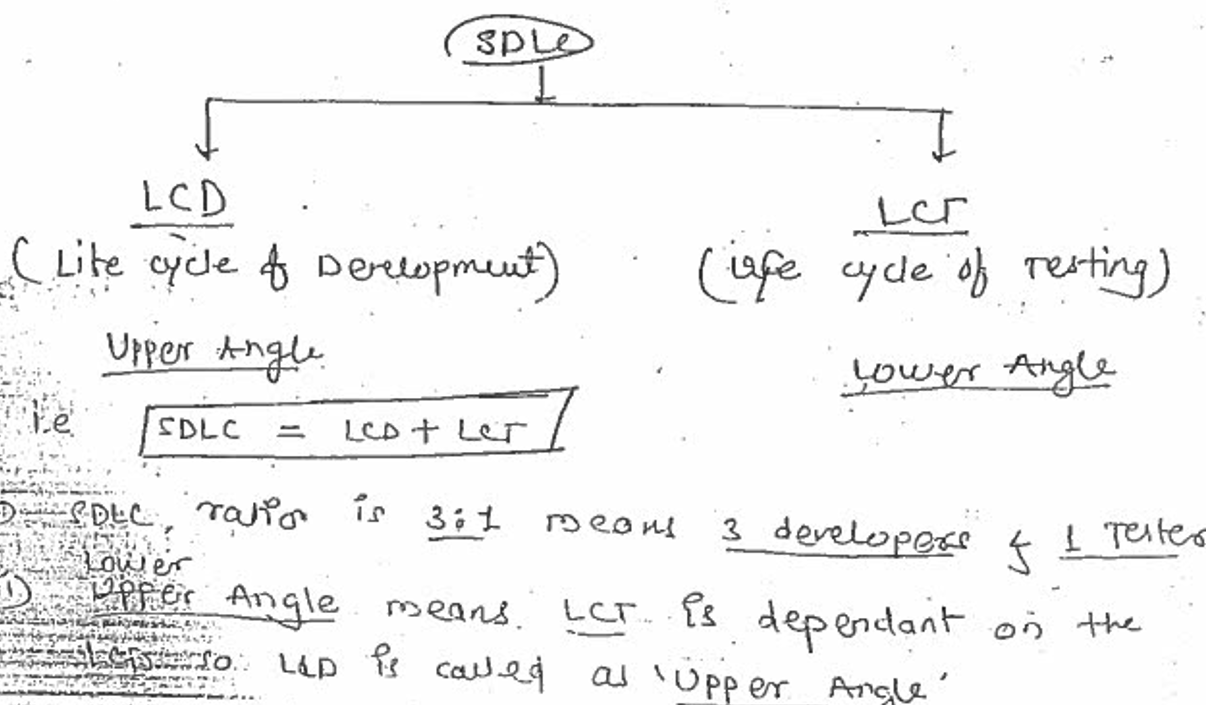 SDLC
LCD
LCT
(Life cycle of Development)
(life cycle of Testing)
Upper Angle
Lower Angle
i.e SDLC = LCD + LCT
SDLC, ratio is 3:1 means 3 developers & 1 Tester
Lower
Upper Angle means LCT is dependant on the
so LCD is called as 'Upper Angle'